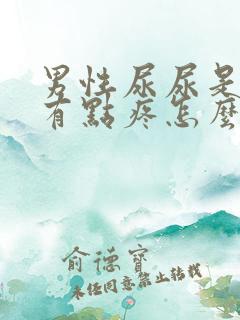 男性尿尿是
有點疼怎麼
俞德寶
未经同意禁止转载